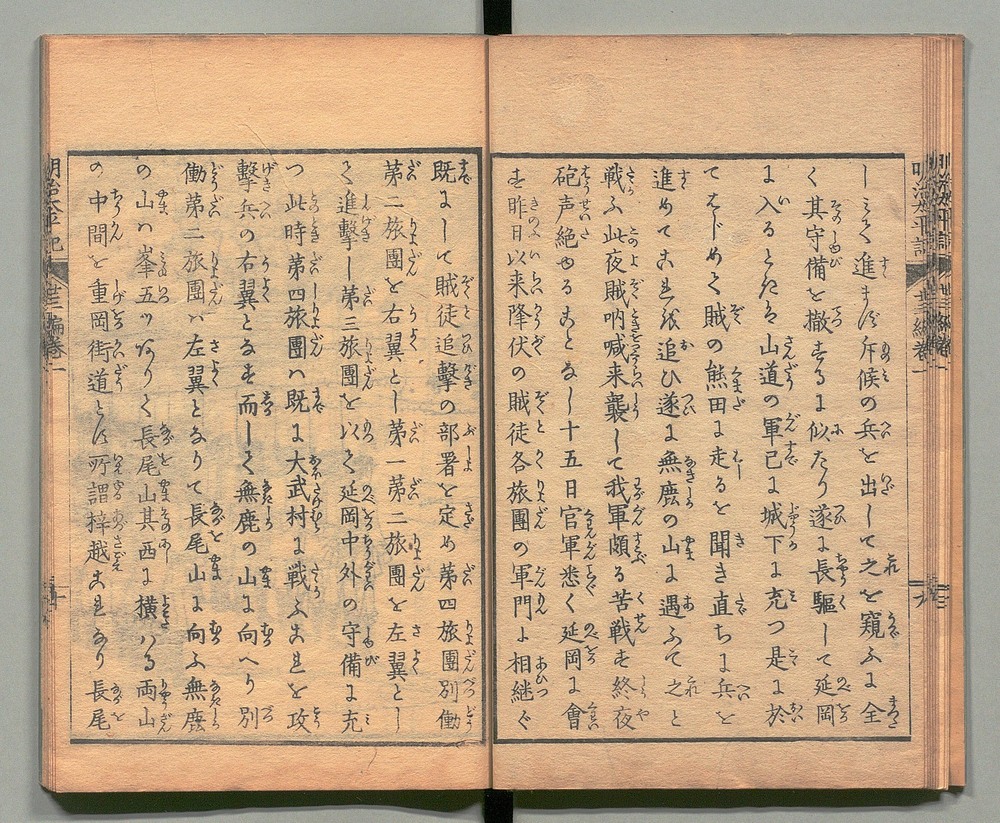 して進まず斥候の兵を出して之を窺ふに全
く其守備を撤するに似たり遂に長驅して延岡
に入るときは山道の軍已に城下に充つ是に於
てはじめて賊の熊田に走るを聞き直ちに兵を
進めて之を追ひ遂に無鹿の山に遇ふて之と
戦ふ此夜賊吶喊来襲して我軍頗る苦戦す終夜
砲声絶ゆることなし十五日官軍悉く延岡に會
す昨日以来降伏の賊徒各旅團の軍門に相継ぐ
既にして賊徒追撃の部署を定め第四旅團別働
第二旅團を右翼とし第一第二旅團を左翼とし
て進撃し第三旅團を以て延岡中外の守備に充
つ此時第四旅團ハ既に大武村に戦ふ之を攻
撃兵の右翼となす而して無鹿の山に向へり別
働第二旅團ハ左翼となりて長尾山に向ふ無鹿
の山ハ峯五ツありて長尾山其西に横ハる両山
の中間を重岡街道とす所謂梓越これなり長尾
明治太平記
廿三編巻一